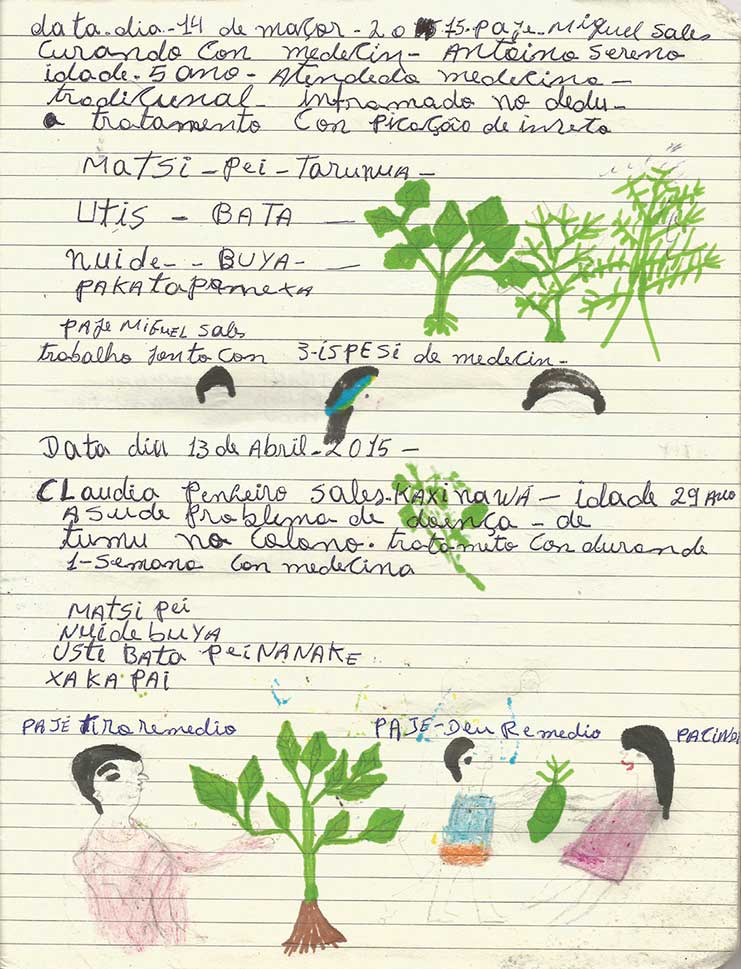 data-dia-14 de março-2015-paje-Miguel Sales
Curando Con medecin- Antoino Sereno
idade-5 ano- Atendedo medecina-
tradicunal- inframado no dedu-
a tratamento Con picação de inseto
MATSi-Pei-TARUMUA-
UTis-BATA-
Nuide--BUYA--
PAKATAPOmEXA
PAJE MIGUEL Sales
trabalho Jonto Con 3-iSPESi de medecin-
DATA dia 13 de Abril-2015-
CLaudia Penheiro SALES-KAXINAWÁ-idade 29 Ano
ASUde Problema de doença-de
tumu no Colono. tratamito Con durande
1-Semana Con medecina
MATSi Pei
NUide bUYA
USTi BATA PeiNANAKE
XAKA PAi
PAJÉ tira remedio
PAJE-Deu Remedio